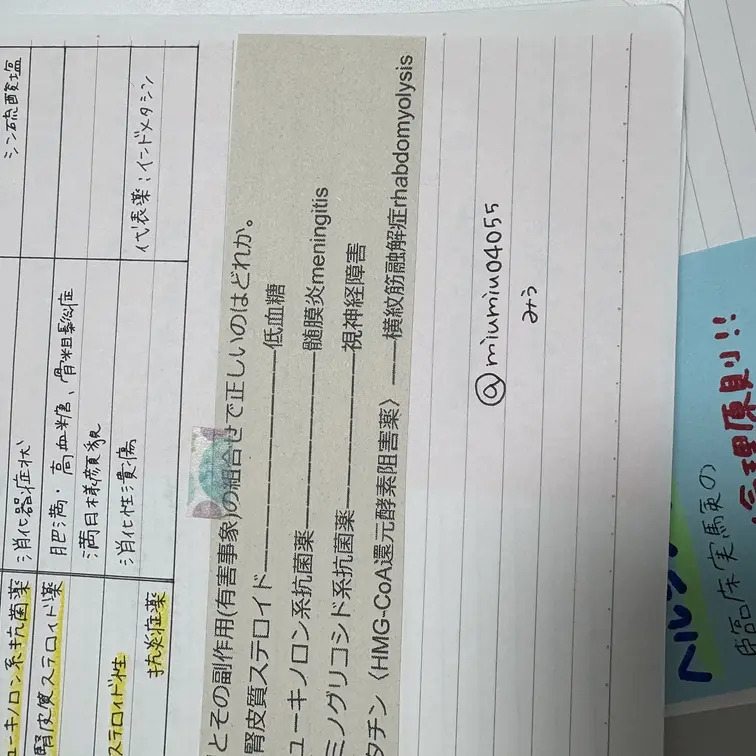 シン硫酸塩
ューキノロン系抗菌薬 消化器症状
腎皮質ステロイド薬 肥満・高血糖、骨粗鬆症
満月様顔貌
ステロイド性 消化性潰瘍
抗炎症薬 代表薬：インドメタシン
とその副作用(有害事象)の組合せで正しいのはどれか。
腎皮質ステロイド――――――――低血糖
ューキノロン系抗菌薬――――――髄膜炎meningitis
ミノグリコシド系抗菌薬―――――視神経障害
タチン〈HMG-CoA還元酵素阻害薬〉――横紋筋融解症rhabdomyolysis
@miumiu04055
みう
ヘルシ
臨床実験の
倫理原則!!